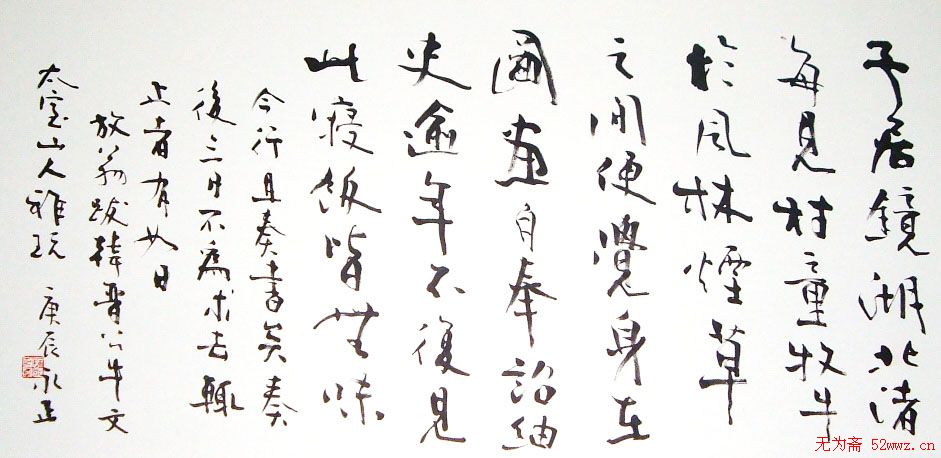 予居鏡湖北渚
每見村童牧牛
於風林煙草
之間便覺身在
圖畫自奉詔紬
史逾年不復見
此寢飯皆無味
今行且奏書矣奏
後三日不為求去輒
止者有如日
放翁跋韓晉公牛文
太室山人雅玩 庚辰 永正
无为斋 52wwz.cn